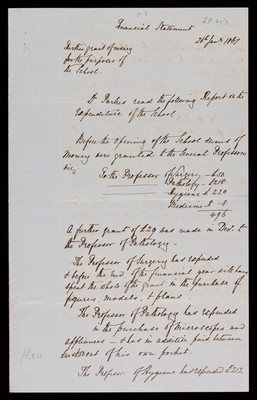 Financial Statement
21st Jany 1861
Further grant of money
for the purposes of
the School.
Dr Parkes read the following Report on the
Expenditure of the School.
Before the opening of the School sums of
Money were granted to the several Professors
viz.
To the Professor of Surgery - £50
Pathology - £218
Hygiene £ 220
Medicine £ - 8
496
A further grant of £29 was made in Decr. to
the Professor of Pathology.
The Professor of Surgery has expended
& before the end of the financial year will have
spent the whole of the grant in the purchase of
figures, models, & plans
The Professor of Pathology has expended
in the purchase of Microscopes and
appliances - & has in addition paid between
out of his own pocket.
The Professor of Hygiene has expended £212